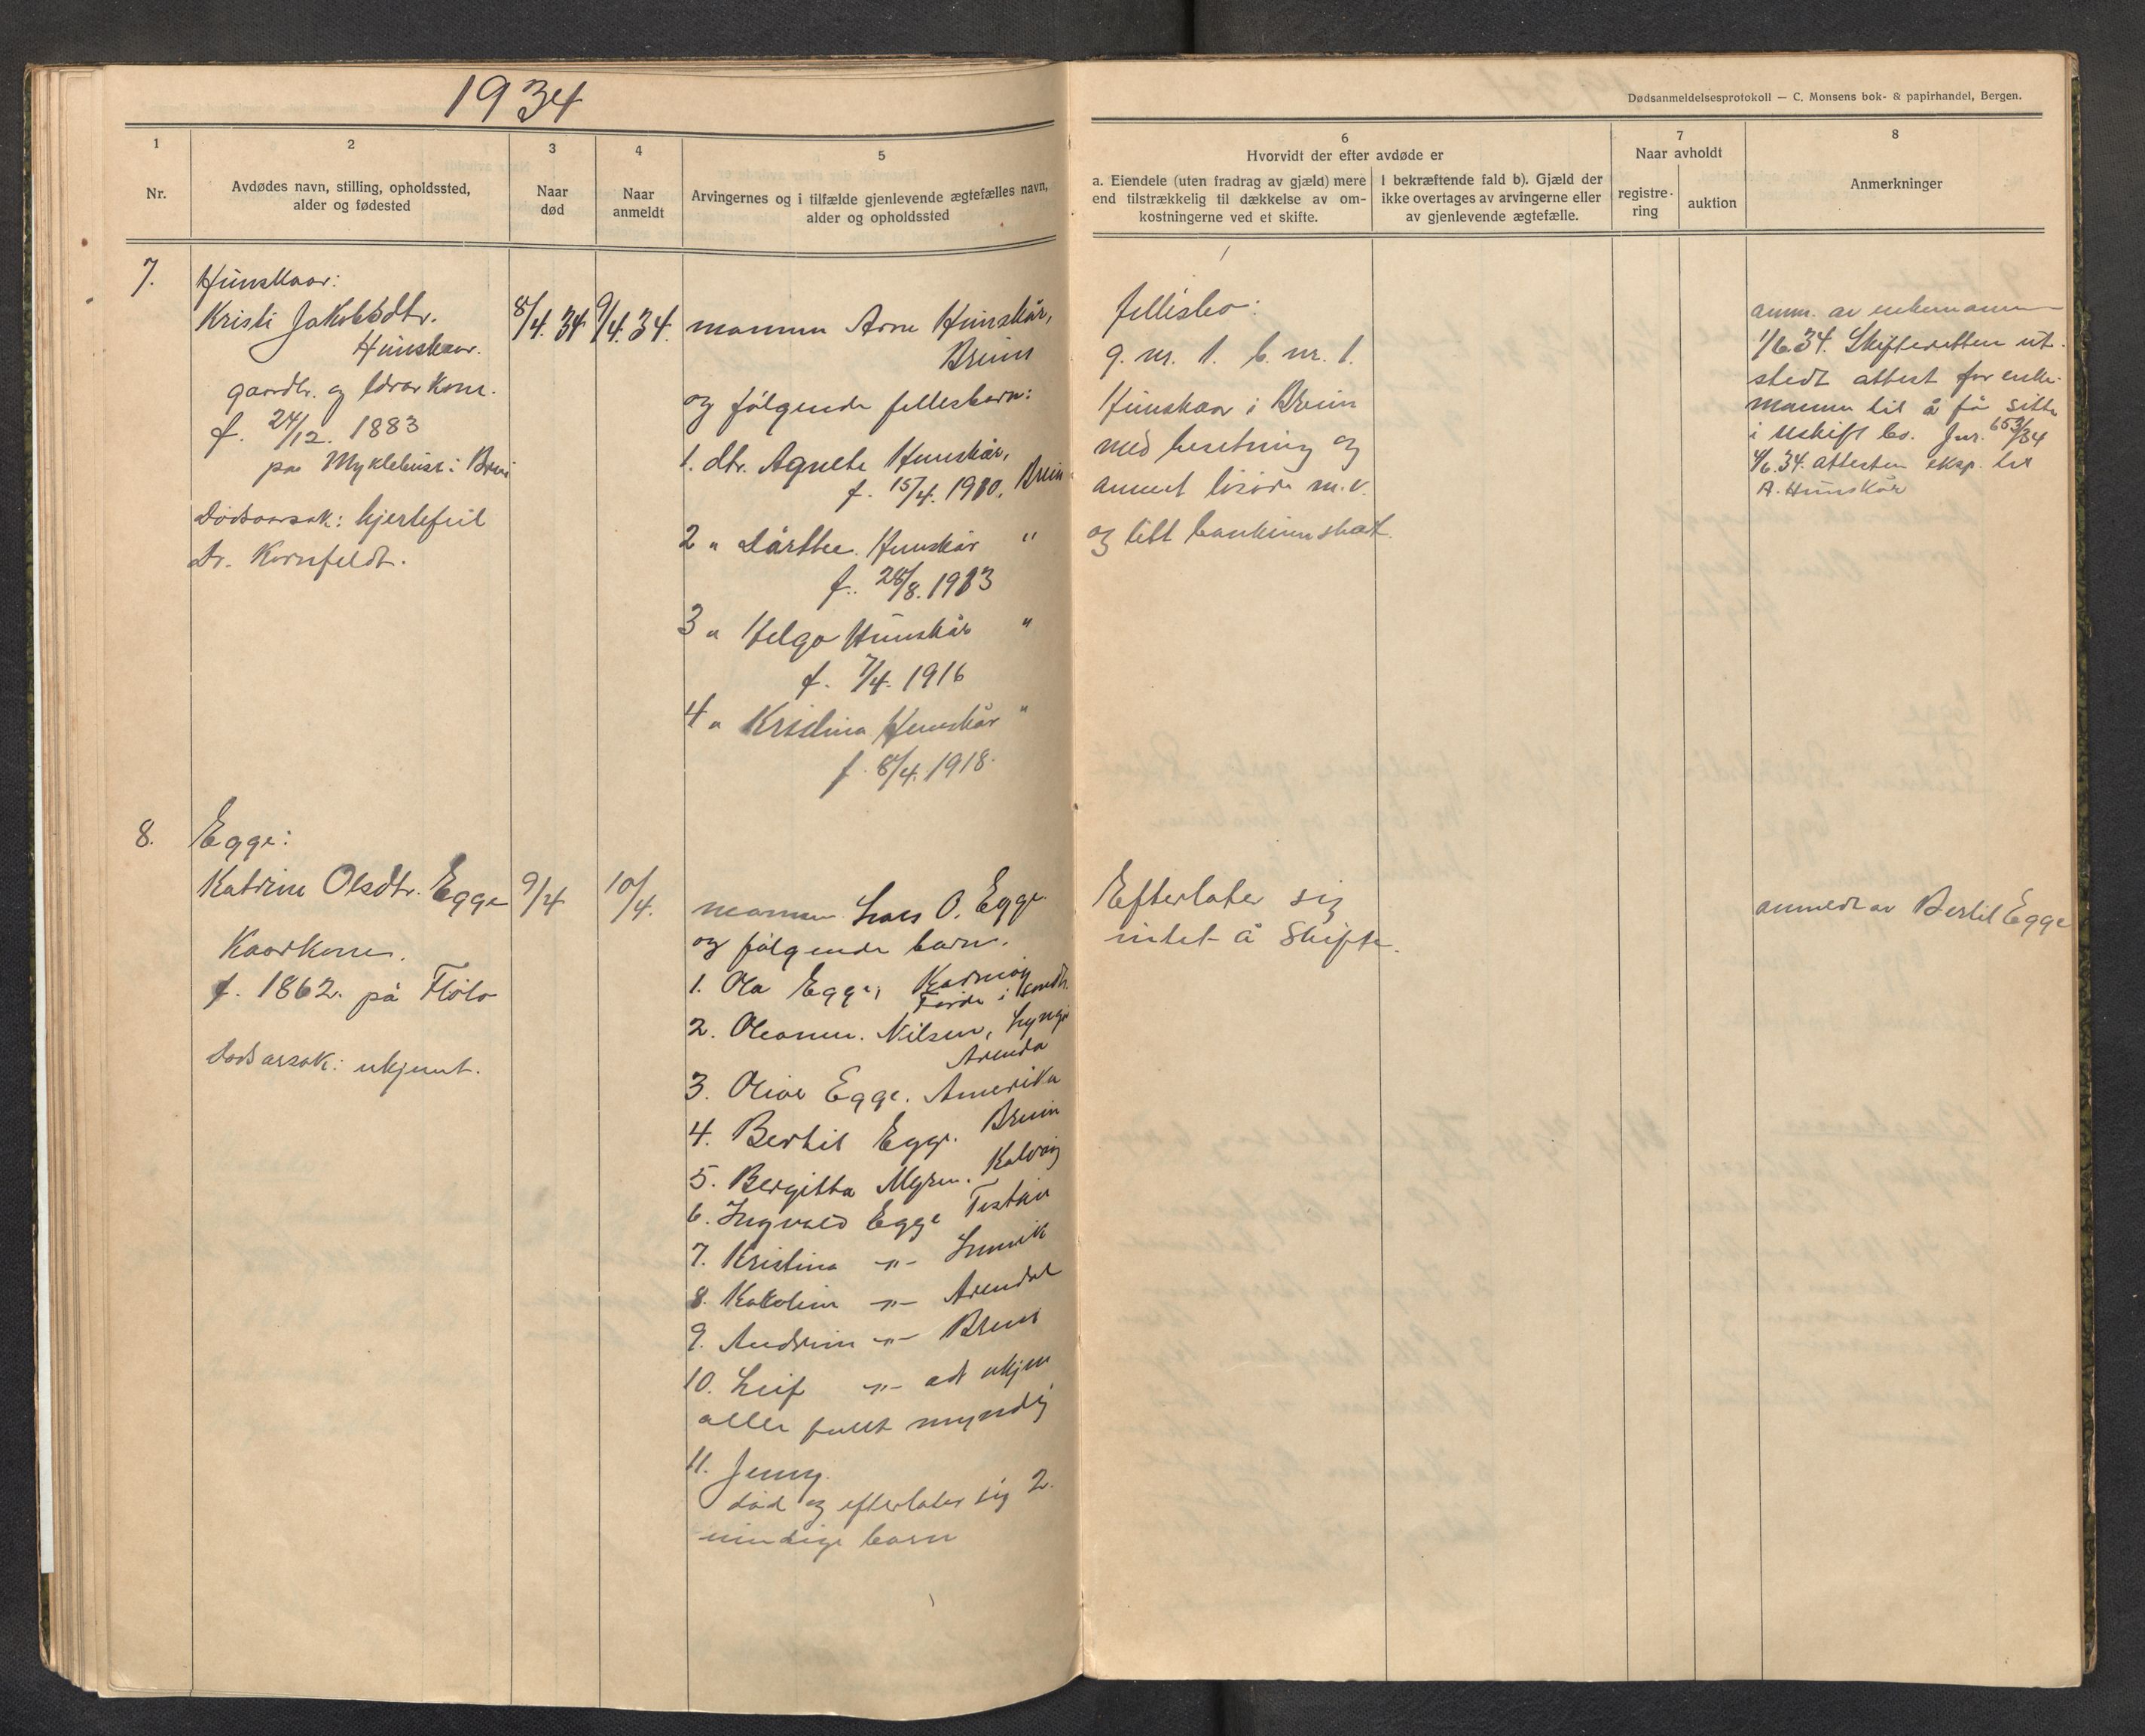 1934
Dødsanmeldelsesprotokoll — C. Monsens bok- & papirhandel, Bergen.
1
Nr.
2
Avdødes navn, stilling, opholdssted,
alder og fødested
3
Naar
død
4
Naar
anmeldt
5
Arvingernes og i tilfælde gjenlevende ægtefælles navn,
alder og opholdssted
6
Hvorvidt der efter avdøde er
a. Eiendele (uten fradrag av gjæld) mere
end tilstrækkelig til dækkelse av om-
kostningerne ved et skifte.
I bekræftende fald b). Gjæld der
ikke overtages av arvingerne eller
av gjenlevende ægtefælle.
7
Naar avholdt
registre-
ring
auktion
8
Anmerkninger
7.
Hunskaar:
Kristi Jakobsdtr.
Hunskaar.
gaardbr. og
f. 24/12. 1883
paa Myklebust i Breim
Dødsaarsak: hjertefeil
Dr. Kornfeldt.
8/4. 34
9/4. 34.
mannen Arne Hunskår,
Breim
og følgende fellesbarn:
1. dtr. Agnete Hunskår,
f. 15/4. 1910, Breim
2 " Dårthe Hunskår "
f. 28/8. 1913
3 " Helga Hunskår "
f. 7/4. 1916
4 " Kristina Hunskår "
f. 8/4. 1918.
fellisbo:
g. nr. 1. b. nr. 1.
Hunskaar i Breim
med besetning og
annet løsøre m.v.
og litt bankinnskot.
anm. av enkemannen
1/6 34. Skifteretten ut-
stedt attest for enke-
mannen til å få sitte
i uskift bo. Jnr. 653/34
4/6.34. attesten eksp. til
A. Hunskår
8.
Egge:
Katrine Olsdtr. Egge
Kaarkone.
f. 1862. på Fløto
Dødsarsak: ukjennt.
9/4
10/4.
mannen Lars O. Egge
og følgende barn.
1. Ola Egge, Karmøy
Førde i Sondh.
2. Oleanne. Nilsen, Lyngør
Arendal
3. Olive Egge. Amerika
4. Bertil Egge. Breim
5. Bergitta Myren. Kalvåg
6. Ingvald Egge
7. Kristina -"- Innvik
8. Karoline -"- Arendal
9. Andrine -"- Breim
10. Leif -"- adr ukjen
alle fullt myndig
11. Jenny.
død og efterlater sig 2.
umindige barn
Efterlater sig
intet å skifte.
anmeldt av Bertil Egge